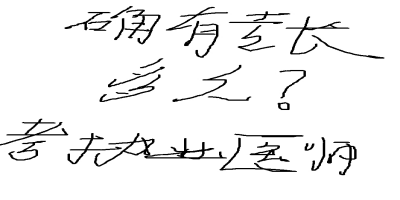 确有专长
多久?
考执业医师